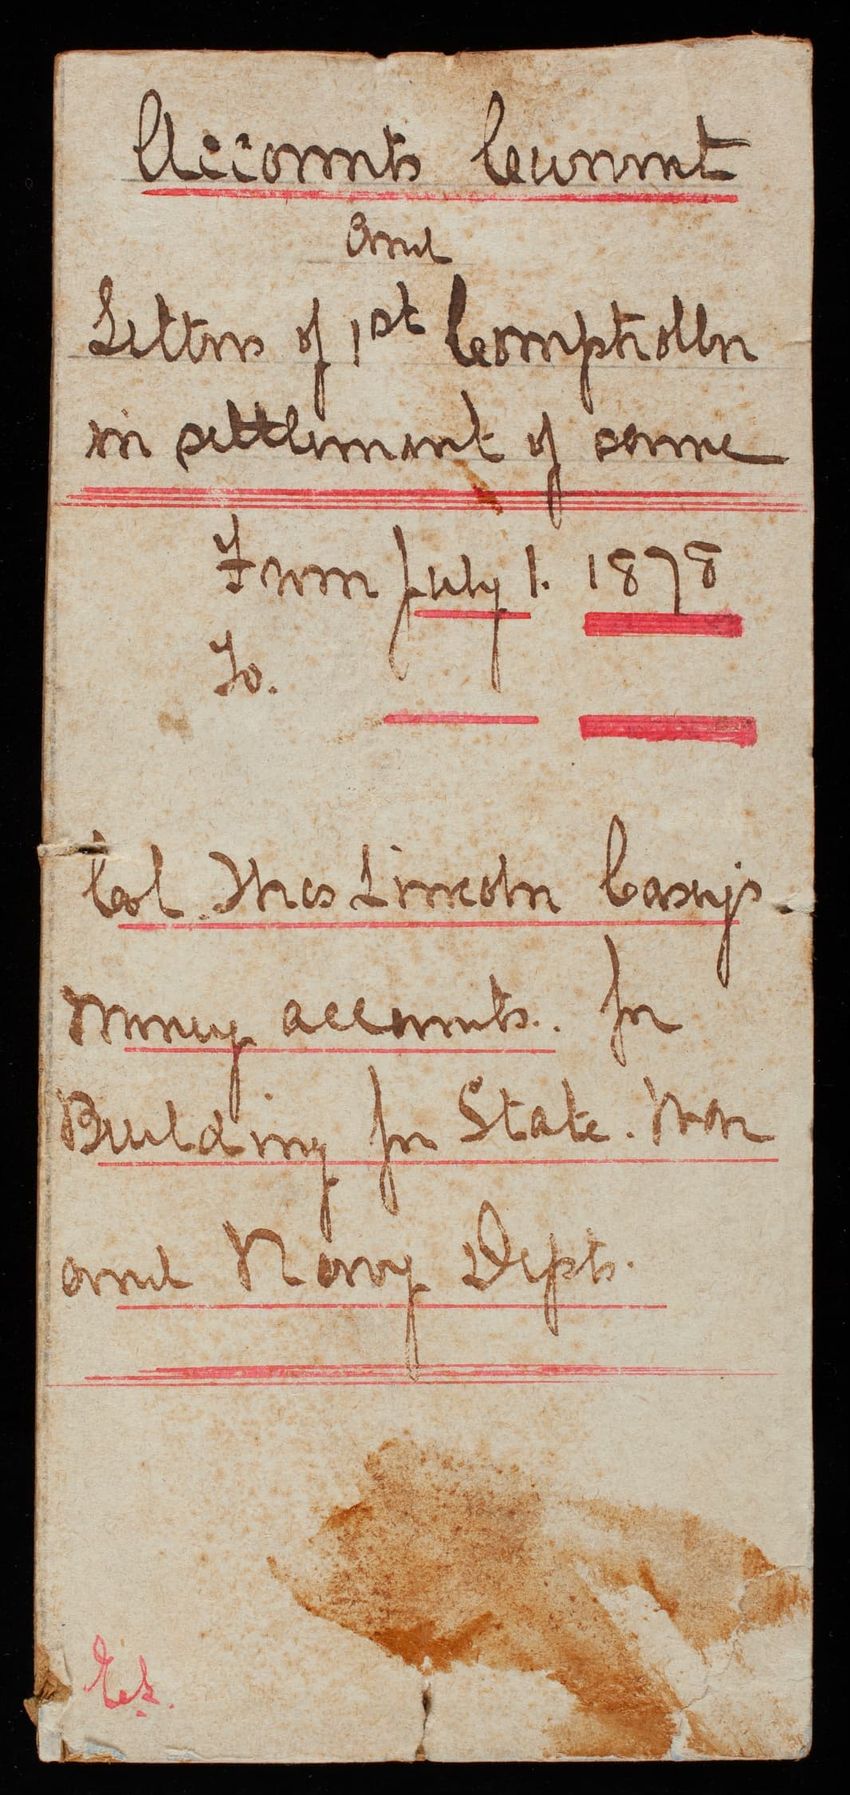 Accounts Current
and
Letters of 1st Comptroller
in settlement of same
From July 1. 1878
To.
Col. Thos Lincoln Casey's
Money accounts. for
Building for State. War
and Navy Depts.